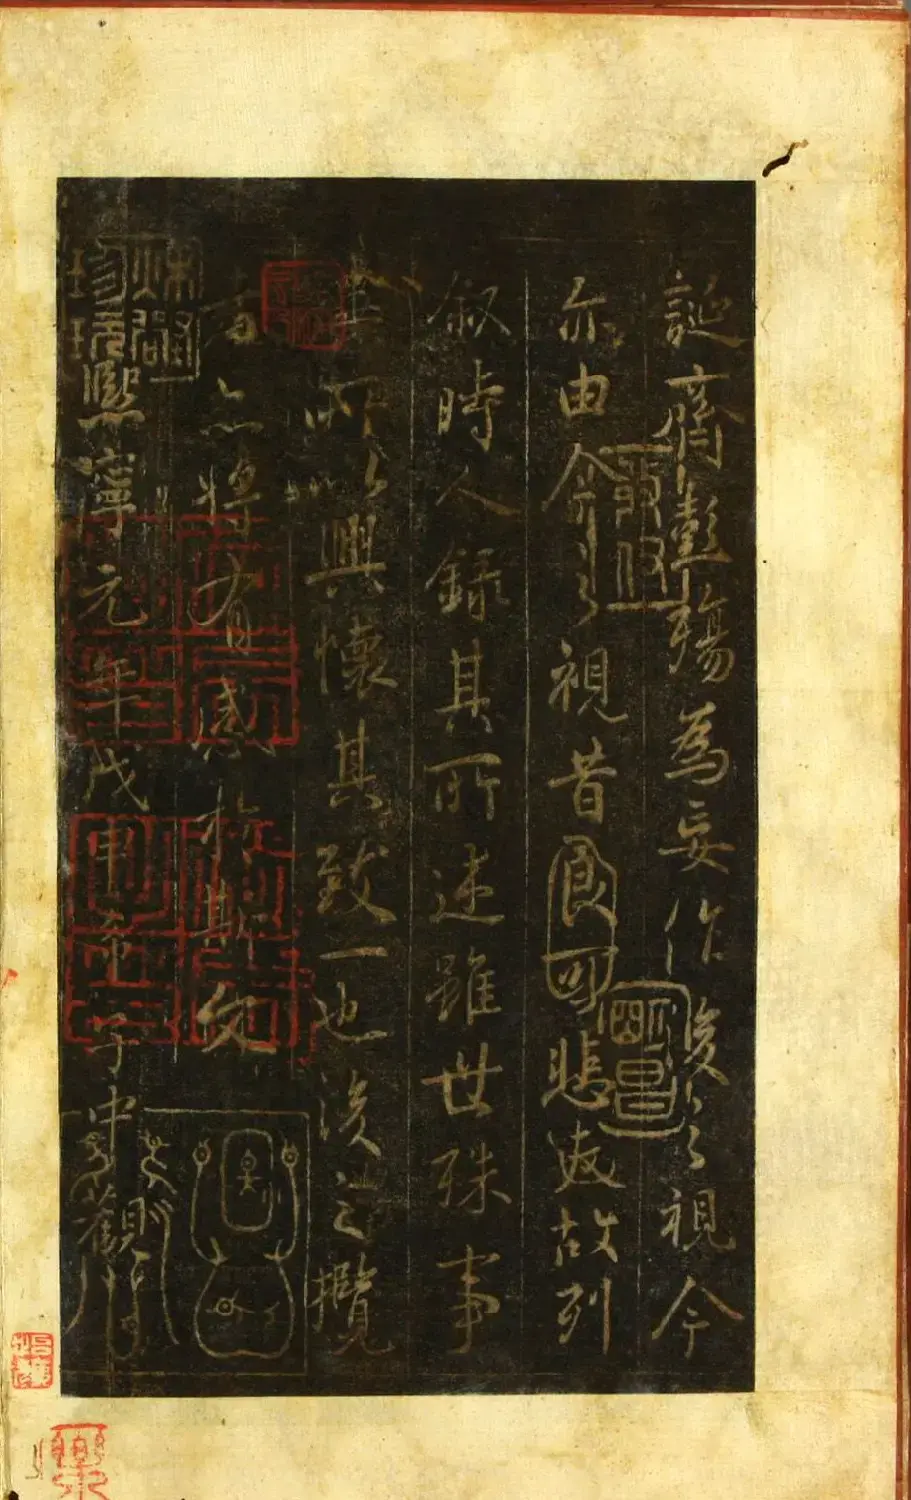 誕齊彭殤為妄作後之視今
亦由今之視昔良可悲夫故列
叙時人錄其所述雖世殊事
異所以興懷其致一也後之攬
者亦將有感扵斯文
熙寧元年戊申希子中觀